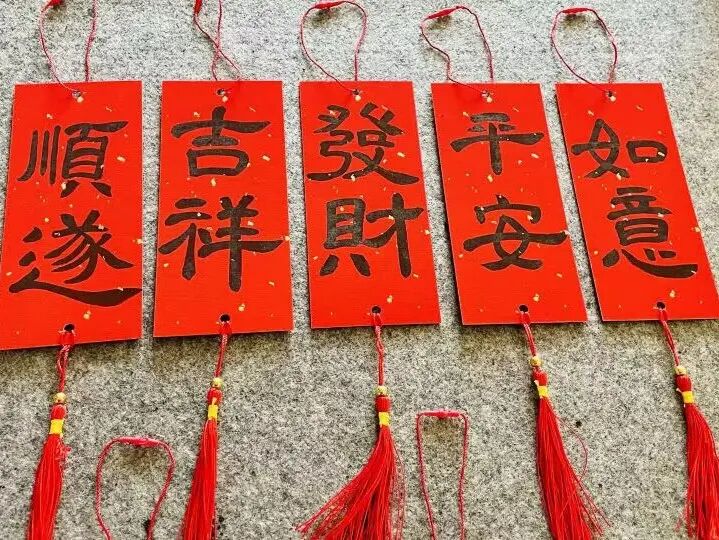 順遂
吉祥
發財
平安
如意